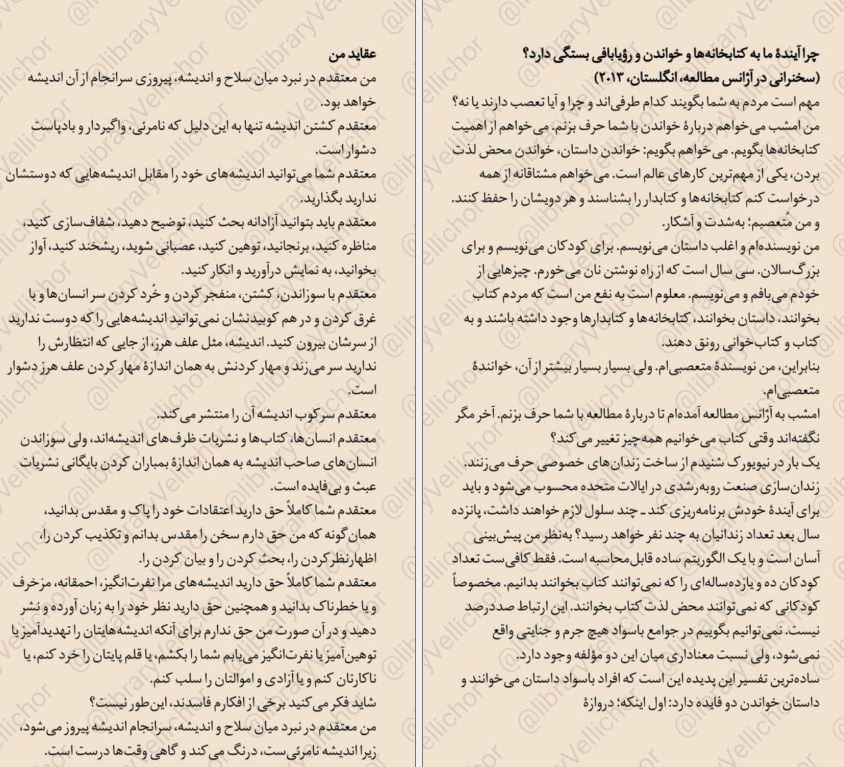 چرا آیندهٔ ما به کتابخانه‌ها و خواندن و رؤیابافی بستگی دارد؟
(سخنرانی در آژانس مطالعه، انگلستان، ۲۰۱۳)
مهم است مردم به شما بگویند کدام طرفی‌اند و چرا و آیا تعصب دارند یا نه؟
من امشب می‌خواهم دربارهٔ خواندن با شما حرف بزنم. می‌خواهم از اهمیت
کتابخانه‌ها بگویم. می‌خواهم بگویم: خواندن داستان، خواندن محض لذت
بردن، یکی از مهم‌ترین کارهای عالم است. می‌خواهم مشتاقانه از همه
درخواست کنم کتابخانه‌ها و کتابدار را بشناسند و هر دویشان را حفظ کنند.
و من مُتعصبم؛ به‌شدت و آشکار.
من نویسنده‌ام و اغلب داستان می‌نویسم. برای کودکان می‌نویسم و برای
بزرگ‌سالان. سی سال است که از راه نوشتن نان می‌خورم. چیزهایی از
خودم می‌بافم و می‌نویسم. معلوم است به نفع من است که مردم کتاب
بخوانند، داستان بخوانند، کتابخانه‌ها و کتابدارها وجود داشته باشند و به
کتاب و کتاب‌خوانی رونق دهند.
بنابراین، من نویسندهٔ متعصبی‌ام. ولی بسیار بسیار بیشتر از آن، خوانندهٔ
متعصبی‌ام.
امشب به آژانس مطالعه آمده‌ام تا دربارهٔ مطالعه با شما حرف بزنم. آخر مگر
نگفته‌اند وقتی کتاب می‌خوانیم همه‌چیز تغییر می‌کند؟
یک بار در نیویورک شنیدم از ساخت زندان‌های خصوصی حرف می‌زنند.
زندان‌سازی صنعت روبه‌رشدی در ایالات متحده محسوب می‌شود و باید
برای آیندهٔ خودش برنامه‌ریزی کند ـ چند سلول لازم خواهند داشت، پانزده
سال بعد تعداد زندانیان به چند نفر خواهد رسید؟ به‌نظر من پیش‌بینی
آسان است و با یک الگوریتم ساده قابل‌محاسبه است. فقط کافی‌ست تعداد
کودکان ده و یازده‌ساله‌ای را که نمی‌توانند کتاب بخوانند بدانیم. مخصوصاً
کودکانی که نمی‌توانند محض لذت کتاب بخوانند. این ارتباط صددرصد
نیست. نمی‌توانیم بگوییم در جوامع باسواد هیچ جرم و جنایتی واقع
نمی‌شود، ولی نسبت معناداری میان این دو مؤلفه وجود دارد.
ساده‌ترین تفسیر این پدیده این است که افراد باسواد داستان می‌خوانند و
داستان خواندن دو فایده دارد: اول اینکه؛ دروازهٔ
عقاید من
من معتقدم در نبرد میان سلاح و اندیشه، پیروزی سرانجام از آن اندیشه
خواهد بود.
معتقدم کشتن اندیشه تنها به این دلیل که نامرئی، واگیردار و بادپاست
دشوار است.
معتقدم شما می‌توانید اندیشه‌های خود را مقابل اندیشه‌هایی که دوستشان
ندارید بگذارید.
معتقدم باید بتوانید آزادانه بحث کنید، توضیح دهید، شفاف‌سازی کنید،
مناظره کنید، برنجانید، توهین کنید، عصبانی شوید، ریشخند کنید، آواز
بخوانید، به نمایش درآورید و انکار کنید.
معتقدم با سوزاندن، کشتن، منفجر کردن و خُرد کردن سر انسان‌ها و یا
غرق کردن و در هم کوبیدنشان نمی‌توانید اندیشه‌هایی را که دوست ندارید
از سرشان بیرون کنید. اندیشه، مثل علف هرز، از جایی که انتظارش را
ندارید سر می‌زند و مهار کردنش به همان اندازهٔ مهار کردن علف هرز دشوار
است.
معتقدم سرکوب اندیشه آن را منتشر می‌کند.
معتقدم انسان‌ها، کتاب‌ها و نشریات ظرف‌های اندیشه‌اند، ولی سوزاندن
انسان‌های صاحب اندیشه به همان اندازهٔ بمباران کردن بایگانی نشریات
عبث و بی‌فایده است.
معتقدم شما کاملاً حق دارید اعتقادات خود را پاک و مقدس بدانید،
همان‌گونه که من حق دارم سخن را مقدس بدانم و تکذیب کردن را،
اظهارنظر کردن را، بحث کردن را و بیان کردن را.
معتقدم شما کاملاً حق دارید اندیشه‌های مرا نفرت‌انگیز، احمقانه، مزخرف
و یا خطرناک بدانید و همچنین حق دارید نظر خود را به زبان آورده و نشر
دهید و در آن صورت من حق ندارم برای آنکه اندیشه‌هایتان را تهدیدآمیز یا
توهین‌آمیز یا نفرت‌انگیز می‌یابم شما را بکشم، یا قلم پایتان را خرد کنم، یا
ناکارتان کنم و یا آزادی و اموالتان را سلب کنم.
شاید فکر می‌کنید برخی از افکارم فاسدند، این‌طور نیست؟
من معتقدم در نبرد میان سلاح و اندیشه، سرانجام اندیشه پیروز می‌شود،
زیرا اندیشه نامرئی‌ست، درنگ می‌کند و گاهی وقت‌ها درست است.
@libraryVellichor